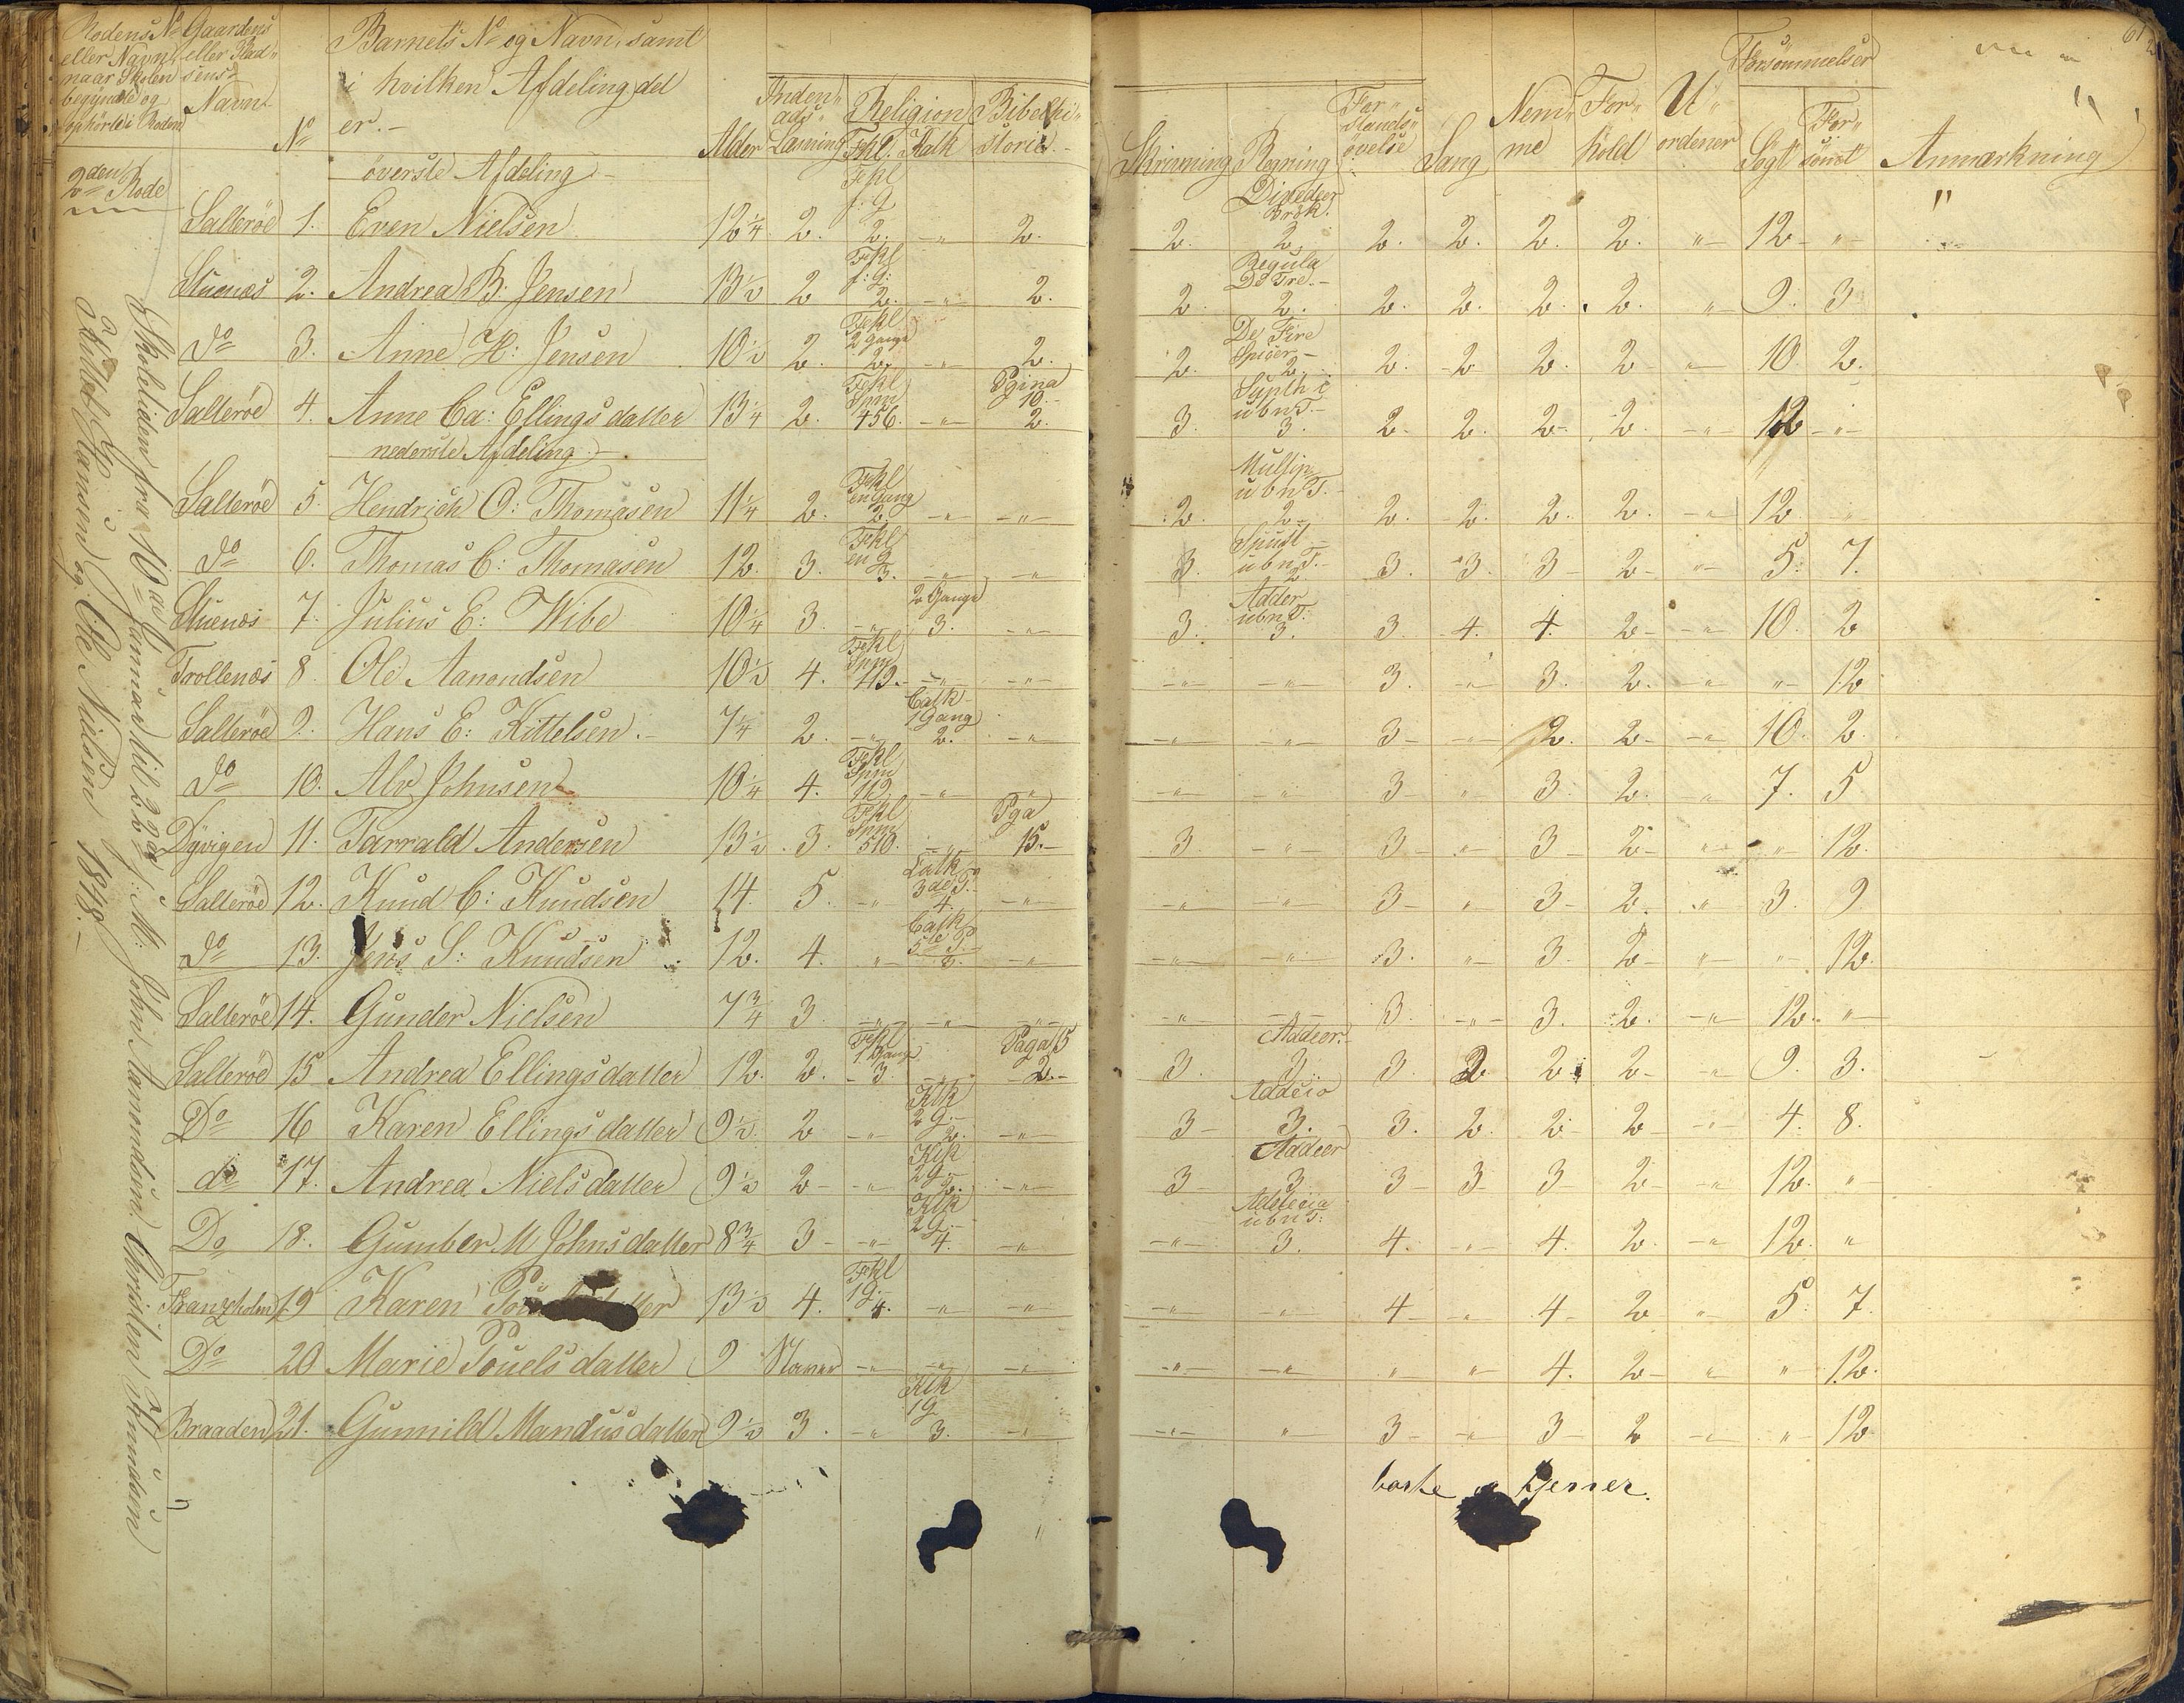 Rodens No eller Navn, naar Skolen begyndte og ophörte i Roden
Gaardens eller Plad„sens„ Navn
No
Barnets No og Navn, samt
i hvilken Afdeling det
er.-
Alder
Inden„ads„ Læsning
Religion
Fkl. Katk
Bibelhi„storie.-
Skrivning
Regning
For„stands„övelse
Sang
Nem„me
For„hold
U„ordener
Forsömmelser
Sögt
For„sömt
Anmærkning
2den Rode
överste Afdeling.-
Salteröe 1. Even Nielsen 12 1/4 2. Fkl f: g 2. -„- 2. 2. Divideer Brök. 2. 2. 2. 2. 2. „ 12- „- „
Stuenæs 2. Andrea B: Jensen 13 1/2 2 Fkl f: g: 2. -„- 2. 2. Regula De Tre.- 2. 2. 2. 2. 2. „ 9. 3
do 3. Anne H: Jensen 10 1/2 2. Fkl 2 Gange 2. -„- 2. 2. De Fire Spicer- 2. 2. 2 2. 2 „ 10 2.
Salteröe 4. Anne Ca: Ellingsdatter 13 1/4 2. Fkl Spm 456. -„- Pgina 10.- 2. 3. ubn T.- 3. 2. 2. 2- 2. -„- 12 -„-
nederste Afdeling.-
Salteröe 5. Hendrich O: Thomasen 11 1/4 2. Fkl en Gang 2. -„- -„- 2. Multip ubn T.- 2- 2. 2. 2. 2. -„ 12. „
do 6. Thomas C: Thomasen 12. 3. Fkl en G 3. -„- -„- 3. ubn T.- 2. 3. 3. 3- 2- „- 5. 7.
Stuenæs 7. Julius E: Wibe 10 1/4 3. -„- 2 Gange 3. -„- 3. Adder ubn T. 3. 3 4. 4. 2- -„- 10. 2
Trollenæs 8. Ole Aanondsen 10 1/2 4. Fkl Spm 413.- -„- -„- -„- -„- 3. -„ 3. 2. -„ „- 12
Salteröe 9. Hans E: Kittelsen.- 7 1/4 2. -„- Catk 1 Gang 2. -„- -„- -„- 3- -„- 2. 2- -„- 10. 2.
do 10. Alv Johnsen 10 1/4 4. Fkl Spm 112. -„- „ -„- -„- 3 „ 3. 2. „ 7. 5
Dyvigen 11. Tarrald Andersen 13 1/2 3. Fkl Spm 510. -„- Pga 15.- 3 -„- 3- „ 3- 2- „- „ 12.
Salteröe 12. Knud C: Knudsen 14. 5. -„ Catk 3de P. 4. -„- -„ -„- 3- „ 3- 2. „ 3. 9.
do 13. Jens S: Knudsen 12. 4. „ Catk 5te P.- 3. -„- -„- -„- 3. „ 3. 2- „- „ 12.
Salteröe 14. Gunder Nielsen 7 3/4 3. -„- -„ -„- -„ -„- 3. -„- 3. 2. -„- 12. „-
Salteröe 15 Andrea Ellingsdatter 12. 2. Fkl 1 Gang 3. -„- Paga 15 2.- 3. Adeer.- 3. 3. 2 2. 2- -„ 9. 3.
Do 16 Karen Ellingsdatter 9 1/2 2 -„- Ktk 2 G.- 2. -„- 3- Addeio 3. 3. 2. 2- 2- -„- 4. 8.
do 17. Andrea Nielsdatter 9 1/2 2- -„ Ktk 2 G.- 2. -„- 3- Addeer 3. 3- 3- 3 2- -„- 12. „
Do 18. Gumber M Johnsdatter 8 3/4 3- -„- Ktk 2 G.- 4. -„ -„- ubn T: 3. 4. -„ 4. 2. -„ 12. „
Franzholm 19 Karen 13 1/2 4. Fkl 1 G.- 4. -„ -„- -„- -„- 4- -„ 4- 2 „ 5. 7.
Do 20 Marie Pouelsdatter 9 Staver -„- -„- -„- -„- -„- „ „ 4. 2- „ „ 12.
Braaden 21. Gunnild Mandusdatter 9 1/2 3. -„ Ktk 1 G 3. -„ -„- „ 3- -„ 3- 2 -„ „ 12
Skoletiden fra 10de Januar til 22de J: M: John Aamondsen Christen Amundsen
Kittel Hansen og Ole Nielsen 1848.-